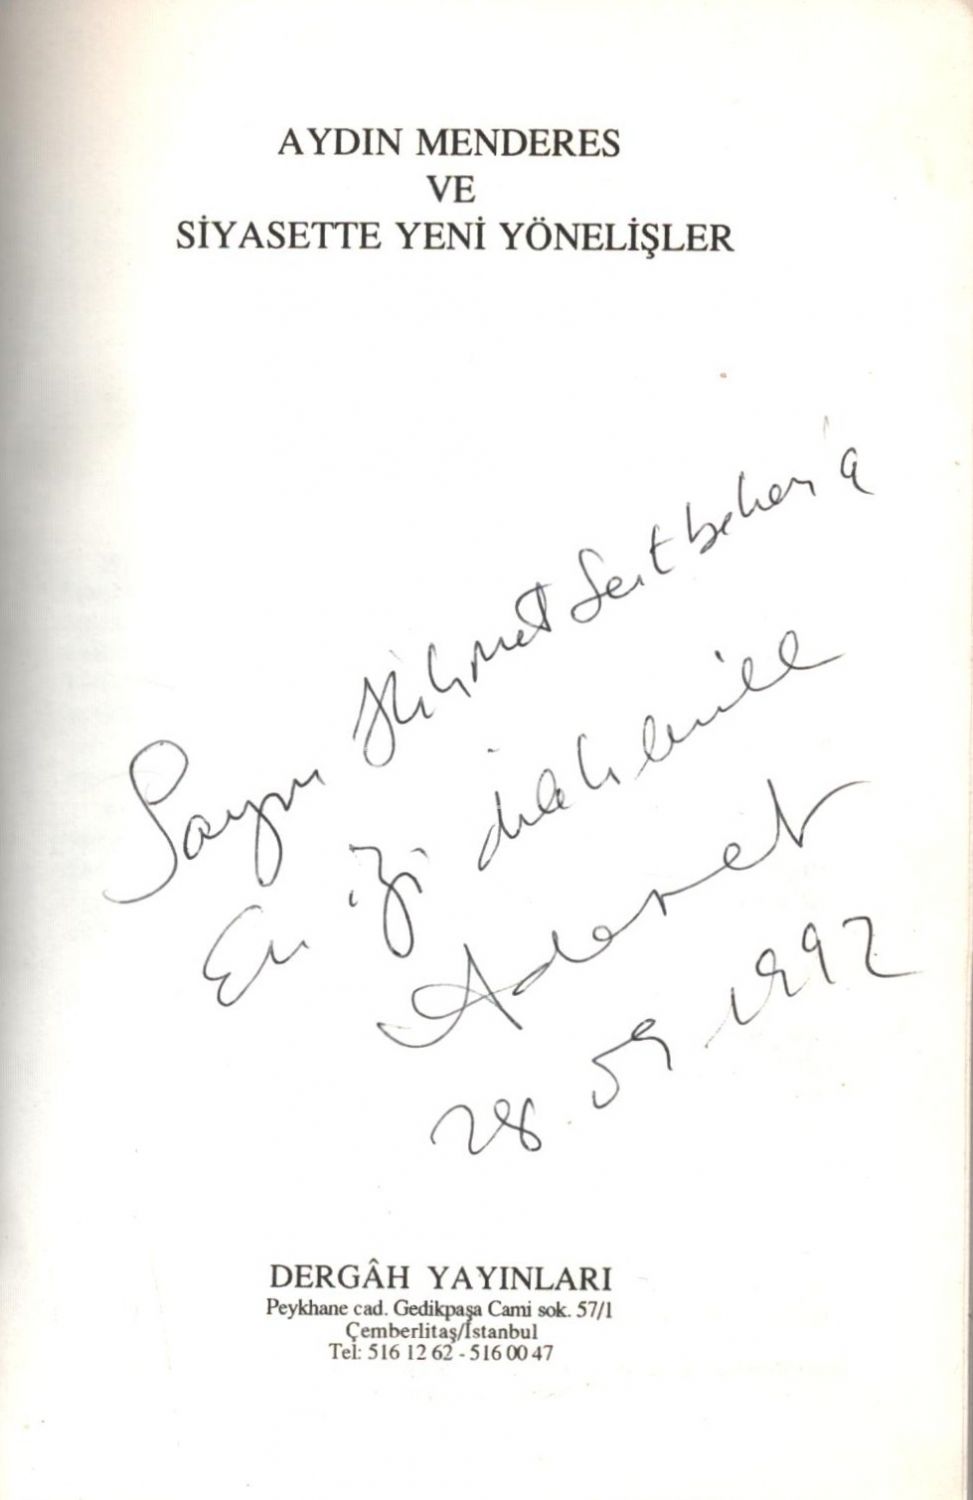 AYDIN MENDERES
VE
SİYASETTE YENİ YÖNELİŞLER
Sayın Hikmet Sertbeken'a
En iyi dileklerimle
28.09.1992
DERGÂH YAYINLARI
Peykhane cad. Gedikpaşa Cami sok. 57/1
Çemberlitaş/İstanbul
Tel: 516 12 62 - 516 00 47